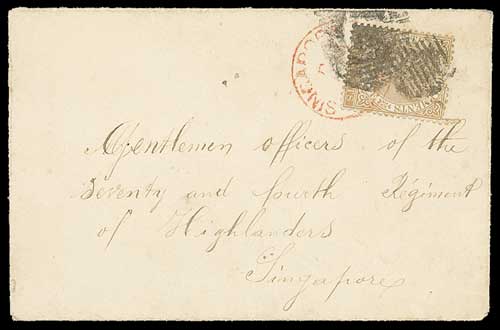 SINGAPORE
CENTS
Gentlemen officers of the
Seventy and fourth Regiment
of Highlanders
Singapore